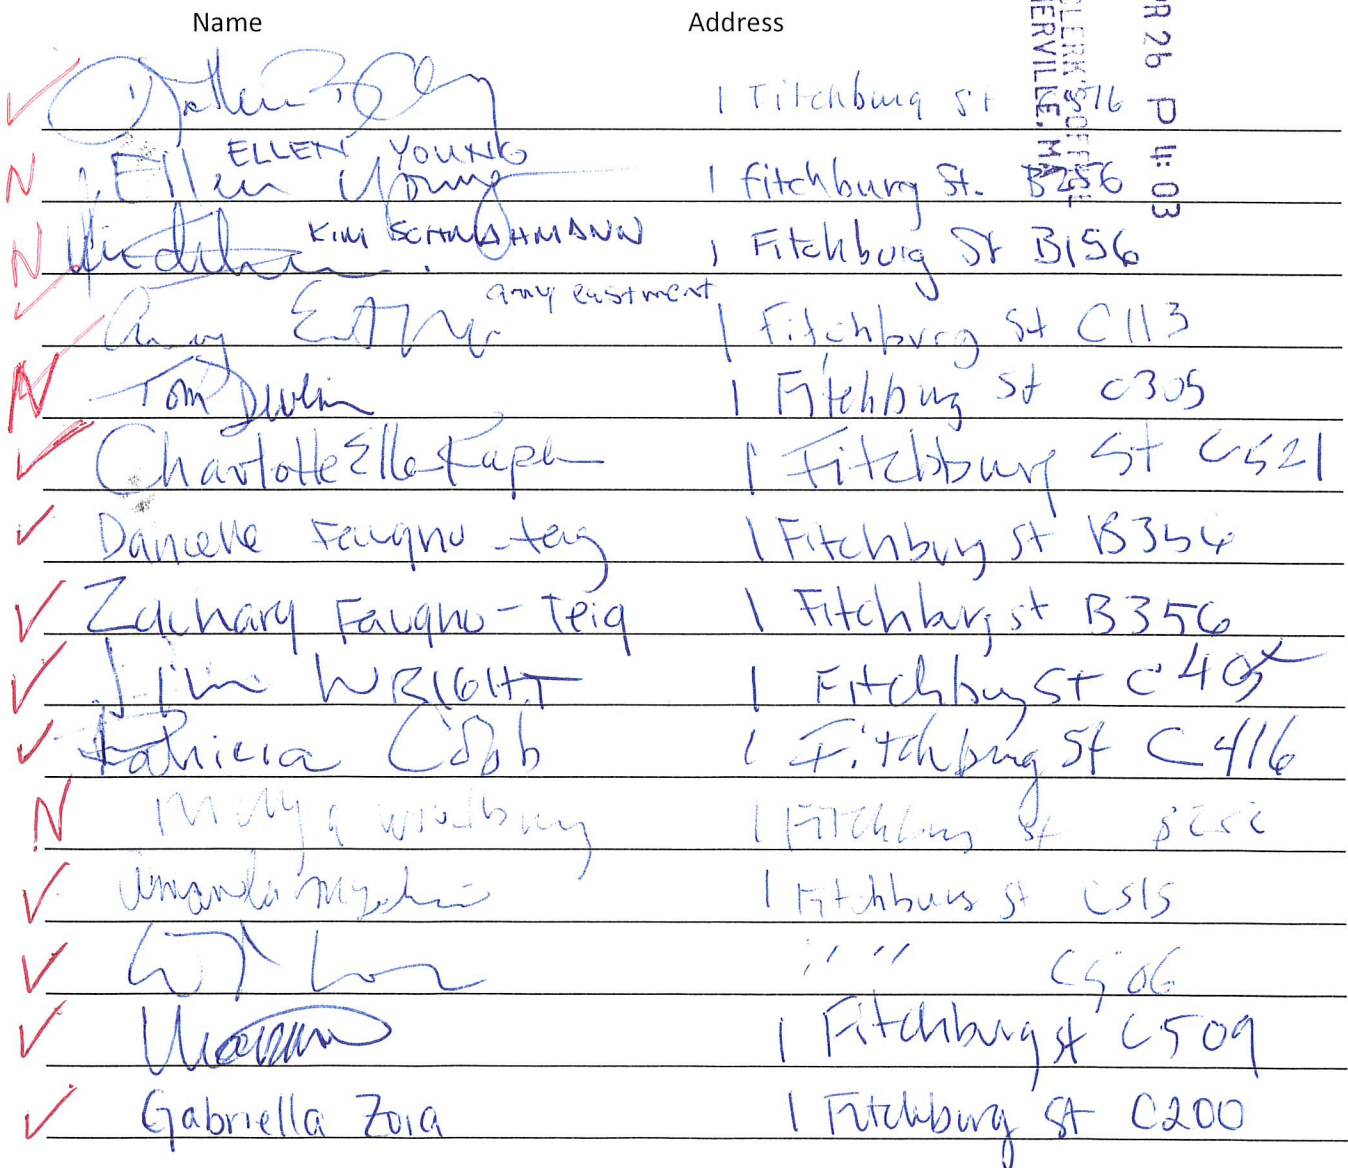 Name Address
1 Fitchburg St
ELLEN YOUNG
Ellen Young 1 Fitchburg St. B256
KIM SCHMAHMANN 1 Fitchburg St B156
amy eastment
Amy 1 Fitchburg St C113
Tom Devlin 1 Fitchburg St C305
Charlotte Elle Kapl 1 Fitchburg St C521
Danielle Faugno-teig 1 Fitchburg St B356
Zachary Faugno-Teig 1 Fitchburg st B356
Jim WRIGHT 1 Fitchburg St C405
Patricia Cobb 1 Fitchburg St C416
1 Fitchburg St
Amanda 1 Fitchburg St C515
" " C506
1 Fitchburg st C509
Gabriella Zoia 1 Fitchburg St C200
R 26 P 4:03
CLERK'S OFFICE
ERVILLE, MA